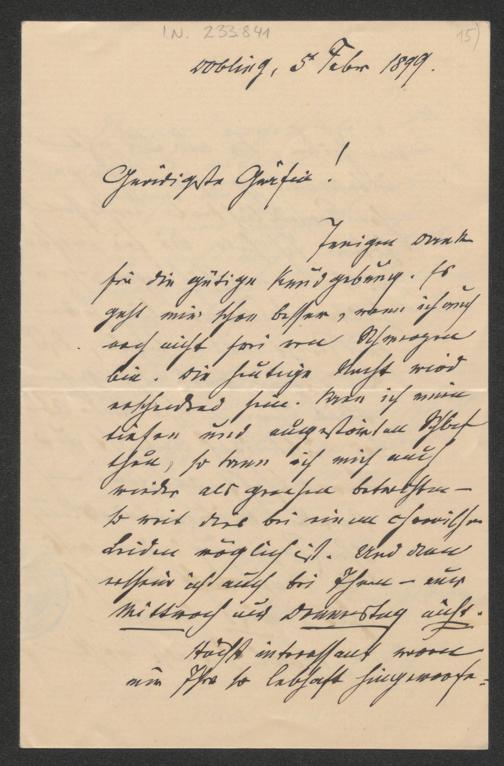 I.N. 233.841
15)
Döbling, 5t Febr 1899.
Gnädigste Gräfin!
Innigen Dank
für die gütige Kundgebung. Es
geht mir schon besser, wenn ich auch
noch nicht frei von Schmerzen
bin. Die heutige Nacht wird
entscheidend sein. Kann ich einen
tiefen und ungestörten Schlaf
thun, so kann ich mich auch
wieder als genesen betrachten –
so weit dies bei einem chronischen
Leiden möglich ist. Und dann
erscheine ich auch bei Ihnen – nur
Mittwoch und Donnerstag nicht.
Höchst interessant waren
mir Ihre so lebhaft hingeworfe-